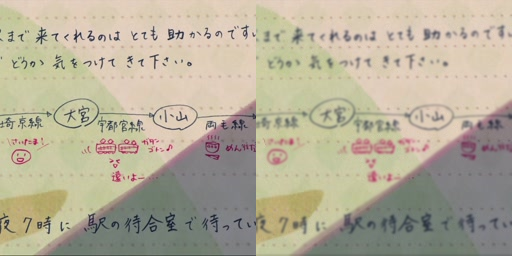 まで来てくれるのは とても 助かるのです
どうか 気をつけて きて下さい。
埼京線 大宮 宇都宮線 小山 両毛線
さいたま！ ガタンゴトン♪
遠いよー
夜7時に 駅の待合室で待ってい
まで来てくれるのは とても 助かるのです
どうか 気をつけて きて下さい。
埼京線 大宮 宇都宮線 小山 両毛線
遠いよー
夜7時に 駅の待合室で待ってい